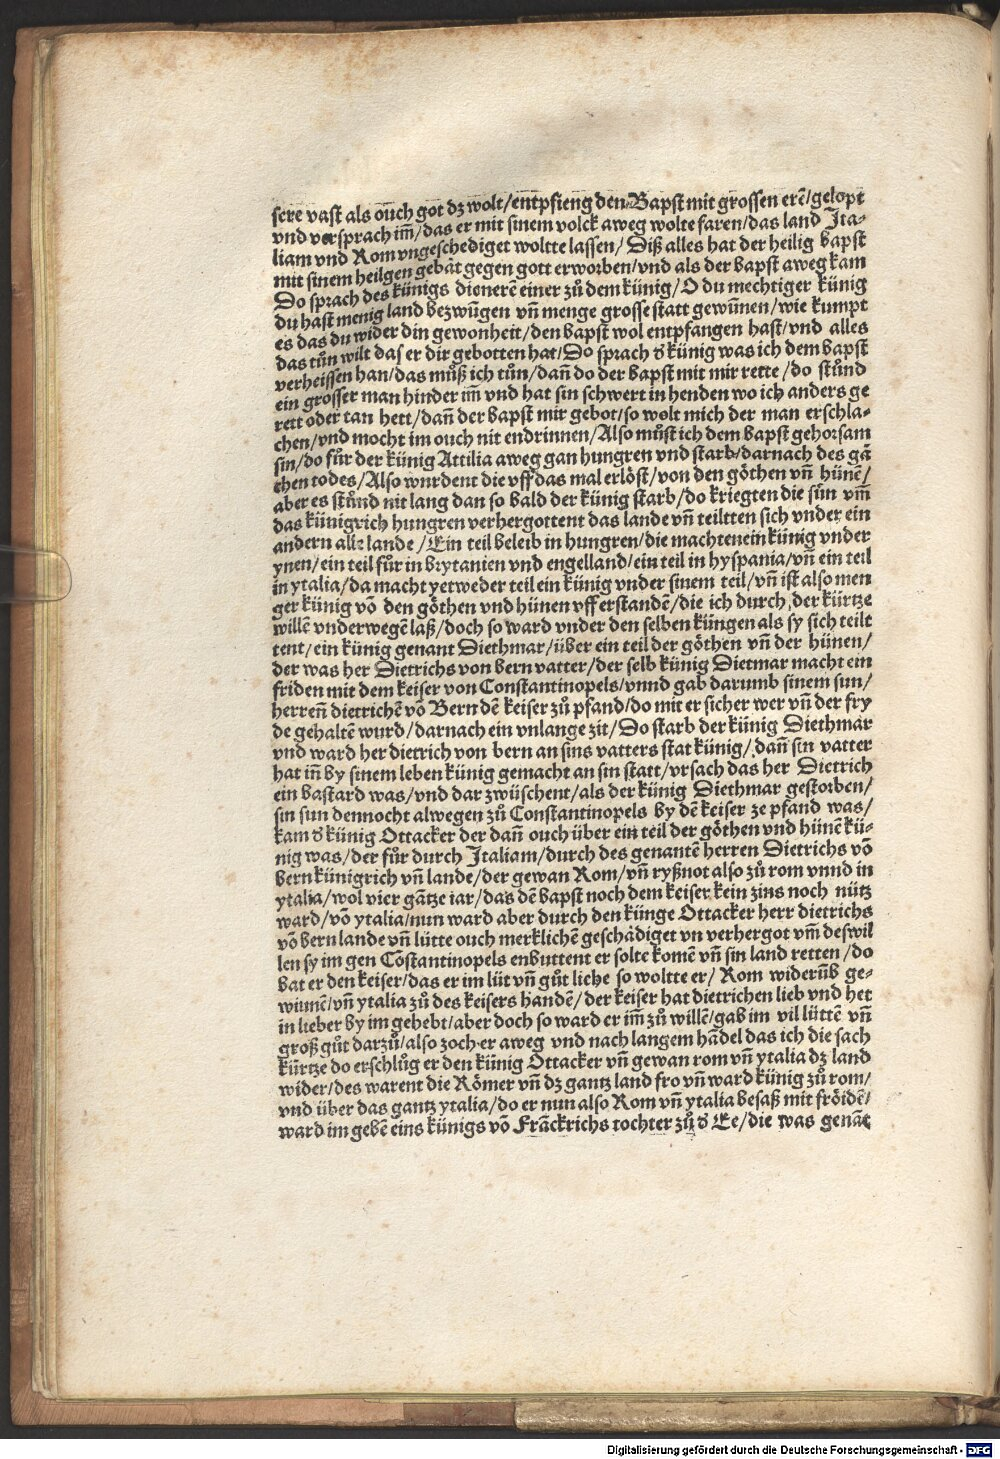 sere vast als ouch got dz wolt/entpfieng den Bapst mit grossen erē/gelopt
vnd versprach im̄/das er mit sinem volck aweg wolte faren/das land Ita-
liam vnd Rom vngeschediget woltte lassen/ Diß alles hat der heilig bapst
mit sinem heilgen gebåt gegen gott erworben/vnd als der bapst aweg kam
Do sprach des künigs dienerē einer zů dem künig/O du mechtiger künig
du hast menig land bezwūgen vn̄ menge grosse statt gewūnen/wie kumpt
es das du wider din gewonheit/den bapst wol entpfangen hast/vnd alles
das tůn wilt das er dir gebotten hat/Do sprach d künig was ich dem bapst
verheissen han/das můß ich tůn/dan̄ do der bapst mit mir rette/do stůnd
ein grosser man hinder im̄ vnd hat sin schwert in henden wo ich anders ge
rett oder tan hett/dan̄ der bapst mir gebot/so wolt mich der man erschla-
chen/vnd mocht im ouch nit endrinnen/Also můst ich dem bapst gehorsam
sin/do fůr der künig Attilia aweg gan hungren vnd starb/darnach des gā
chen todes/Also wurdent die vff das mal erlöst/von den göthen vn̄ hünē/
aber es stůnd nit lang dan so bald der künig starb/do kriegten die sün vm̄
das künigrich hungren verhergottent das lande vn̄ teiltten sich vnder ein
andern alle lande/Ein teil beleib in hungren/die machten ein künig vnder
ynen/ein teil fůr in brytanien vnd engelland/ein teil in hyspania/vn̄ ein teil
in ytalia/da macht yetweder teil ein künig vnder sinem teil/vn̄ ist also men
ger künig vō den göthen vnd hünen vff erstandē/die ich durch der kürtze
willē vnderwegē laß/doch so ward vnder den selben küngen als sy sich teilt
tent/ein künig genant Diethmar/über ein teil der göthen vn̄ der hünen/
der was her Dietrichs von bern vatter/der selb künig Dietmar macht ein
friden mit dem keiser von Constantinopels/vnnd gab darumb sinem sun/
herren̄ dietrichē vō Bern dē keiser zů pfand/do mit er sicher wer vn̄ der fry
de gehaltē wurd/darnach ein vnlange zit/Do starb der künig Diethmar
vnd ward her dietrich von bern an sins vatters stat künig/dan̄ sin vatter
hat in̄ by sinem leben künig gemacht an sin statt/vrsach das her Dietrich
ein bastard was/vnd dar zwüschent/als der künig Diethmar gestorben/
sin sun dennocht alwegen zů Constantinopels by dē keiser ze pfand was/
kam d künig Ottacker der dan̄ ouch über ein teil der göthen vnd hünē kü-
nig was/der fůr durch Italiam/durch des genantē herren Dietrichs vō
bern künigrich vn̄ lande/der gewan Rom/vn̄ ryßnot also zů rom vnnd in
ytalia/wol vier gātze iar/das dē bapst noch dem keiser kein zins noch nütz
ward/vō ytalia/nun ward aber durch den künge Ottacker herr dietrichs
vō bern lande vn̄ lütte ouch merklichē geschädiget vn verhergot vm̄ deswil
len sy im gen Cōstantinopels enbuttent er solte komē vn̄ sin land retten/do
bat er den keiser/das er im lüt vn̄ gůt liche so woltte er/ Rom widerūb ge-
winnē/vn̄ ytalia zů des keisers handē/der keiser hat dietrichen lieb vnd het
in lieber by im gehebt/aber doch so ward er im̄ zů willē/gab im vil lüttē vn̄
groß gůt darzů/also zoch er aweg vnd nach langem hādel das ich die sach
kürtze do erschlůg er den künig Ottacker vn̄ gewan rom vn̄ ytalia dz land
wider/des warent die Römer vn̄ dz gantz land fro vn̄ ward künig zů rom/
vnd über das gantz ytalia/do er nun also Rom vn̄ ytalia besaß mit fröidē/
ward im gebē eins künigs vō Frāckrichs tochter zů d Ee/die was genāt
Digitalisierung gefördert durch die Deutsche Forschungsgemeinschaft - DFG